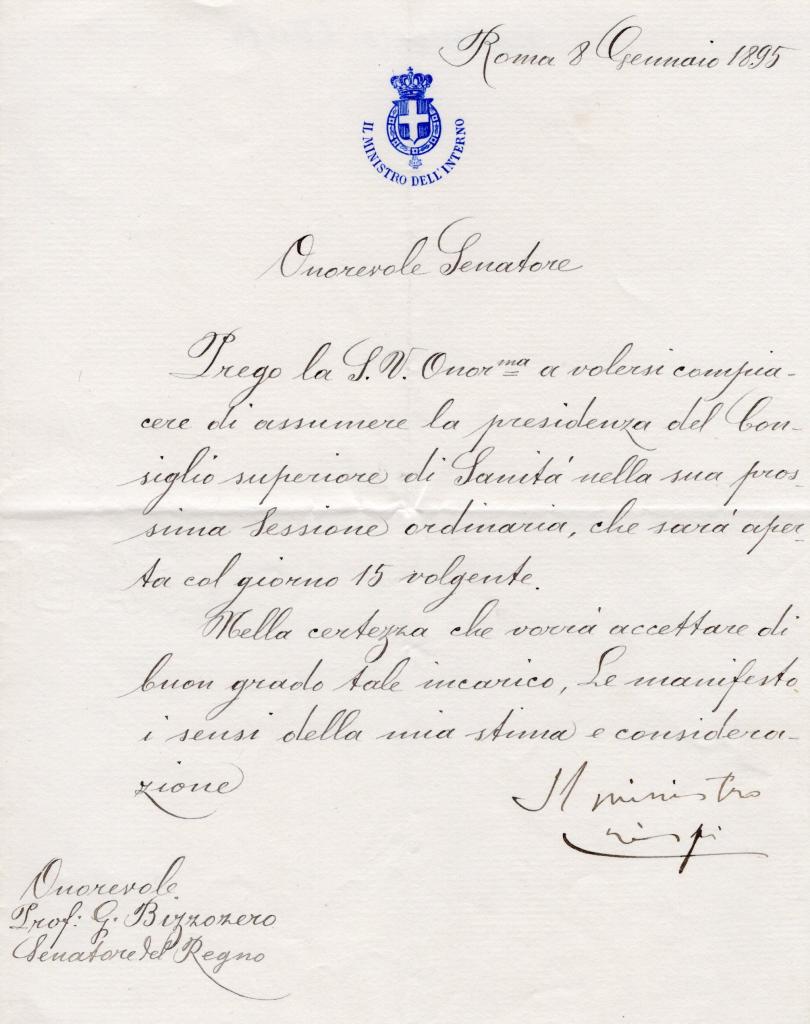 Roma 8 Gennaio 1895
IL MINISTRO DELL'INTERNO
Onorevole Senatore
Prego la S. V. Onorma a volersi compia-
cere di assumere la presidenza del Con-
siglio superiore di Sanitá nella sua pros-
sima Sessione ordinaria, che sará aper-
ta col giorno 15 volgente.
Nella certezza che vorrá accettare di
buon grado tale incarico, Le manifesto
i sensi della mia stima e considera-
zione
Il ministro
Crispi
Onorevole
Prof: G. Bizzozero
Senatore del Regno